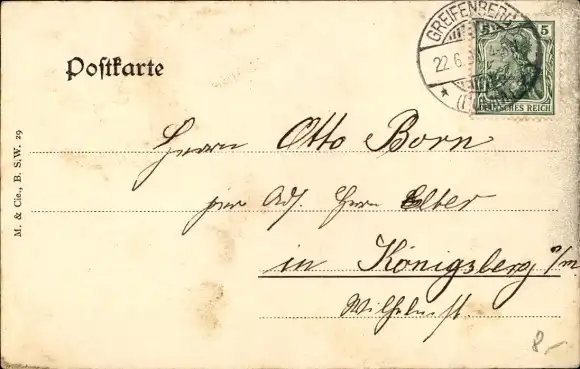 Postkarte
GREIFENBERG
22.6.
5 5
DEUTSCHES REICH
M. & Cie., B. S.W. 29
Herrn Otto Born
per Adr. Herrn Elber
in Königsberg n/m.
Wilhelmst.
8.-